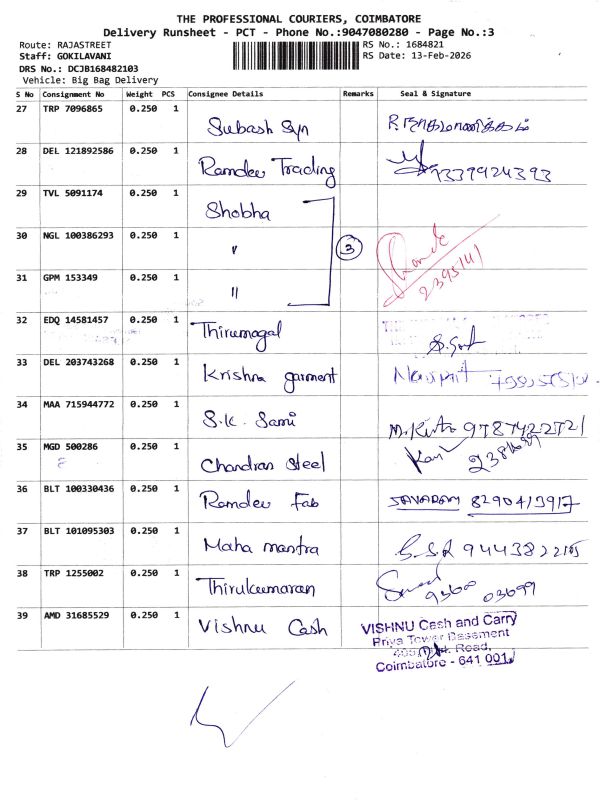 THE PROFESSIONAL COURIERS, COIMBATORE
Delivery Runsheet - PCT - Phone No.:9047080280 - Page No.:3
Route: RAJASTREET
RS No.: 1684821
Staff: GOKILAVANI
RS Date: 13-Feb-2026
DRS No.: DCJB168482103
Vehicle: Big Bag Delivery
S No Consignment No Weight PCS Consignee Details Remarks Seal & Signature
27 TRP 7096865 0.250 1
Subash Syn
28 DEL 121892586 0.250 1
Ramdev Trading 7339924393
29 TVL 5091174 0.250 1
Shobha
30 NGL 100386293 0.250 1
" 3
2395141
31 GPM 153349 0.250 1
"
32 EDQ 14581457 0.250 1
Thirumagal
33 DEL 203743268 0.250 1
Krishna garment
34 MAA 715944772 0.250 1
S.K. Sami 9787422721
35 MGD 500286 0.250 1
Chandran Steel
36 BLT 100330436 0.250 1
Ramdev Fab 8290413917
37 BLT 101095303 0.250 1
Maha mantra
38 TRP 1255002 0.250 1
Thirukumaran
39 AMD 31685529 0.250 1
Vishnu Cash
VISHNU Cash and Carry
Priya Tower Basement
Road,
Coimbatore - 641 001.